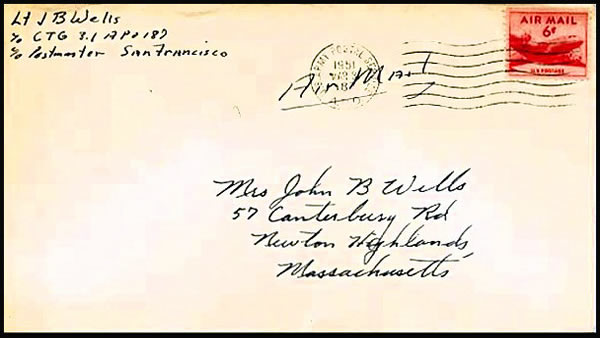 Lt J B Wells
c/o CTG 3.1 APO 187
c/o Postmaster San Francisco
AIR MAIL
6¢
U.S. POSTAGE
ARMY POSTAL SERVICE
1951
Air Mail
Mrs John B Wells
57 Canterbury Rd
Newton Highlands,
Massachusetts